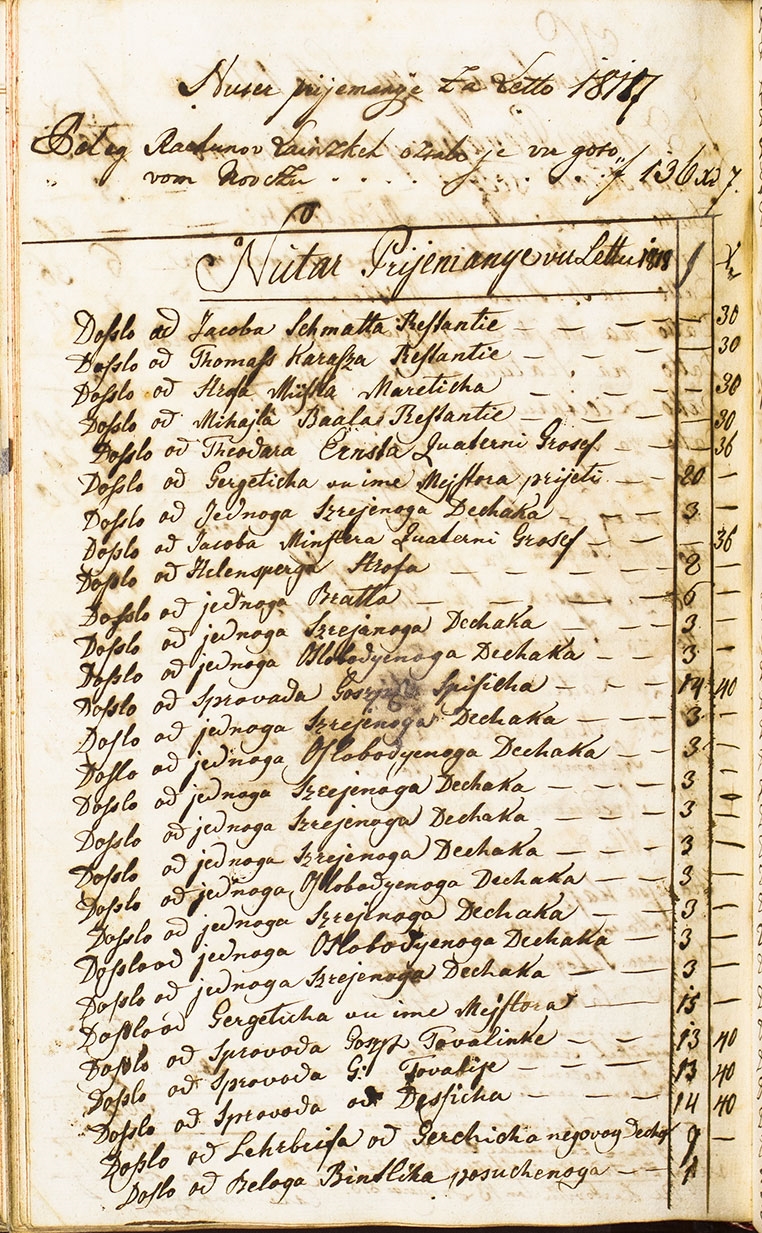 Nuser prijemanje za Letto 1817
Poleg Rachunov Lainzkeh osztalo je vu goto
vom Novczu . . . . . . . f 136 xr 7.
Nutar Prijemanye vu Lettu 1818 f xr
Doßlo od Jacoba Schmatta Restantie — — — — 30
Doßlo od Thomass Karasza Restantie — — — — 30
Doßlo od Mareticha — — — — 30
Doßlo od Mihajla Baala Restantie — — — — 30
Doßlo od Theodara Ernsta Quaterni Grosef — — — 36
Doßlo od Gergeticha vu ime Mejstora prijeti — — 20 —
Doßlo od Jednoga Szrejenoga Dechaka — — — 3 —
Doßlo od Jacoba Minstera Quaterni Grosef — — — 36
Doßlo od Helensperga Strofa — — — — 2 —
Doßlo od jednoga Bratta — — — — 6 —
Doßlo od jednoga Szrejenoga Dechaka — — — 3 —
Doßlo od jednoga Oslobodyenoga Dechaka — — — 3 —
Doßlo od Sprovada Goszpa Spisicha — — — 14 40
Doßlo od jednoga Szrejenoga Dechaka — — — 3 —
Doßlo od jednoga Oslobodyenoga Dechaka — — 3 —
Doßlo od jednoga Szrejenoga Dechaka — — — 3 —
Doßlo od jednoga Szrejenoga Dechaka — — — 3 —
Doßlo od jednoga Szrejenoga Dechaka — — — 3 —
Doßlo od jednoga Oslobodyenoga Dechaka — — 3 —
Doßlo od jednoga Szrejenoga Dechaka — — 3 —
Doßlo od jednoga Oslobodyenoga Dechaka — 3 —
Doßlo od jednoga Szrejenoga Dechaka — — — 3 —
Doßlo od Gergeticha vu ime Mejstora — — 15 —
Doßlo od Sprovoda Goszp Tovalinke — — — 13 40
Doßlo od Sprovoda G: Tovatije — — — 13 40
Doßlo od Sprovoda od Desficha — — — — 14 40
Doßlo od Lehrbriefa od Gerchicha negovog Dechaf 9 —
Doßlo od Beloga Bintlika posuchenoga — — 1